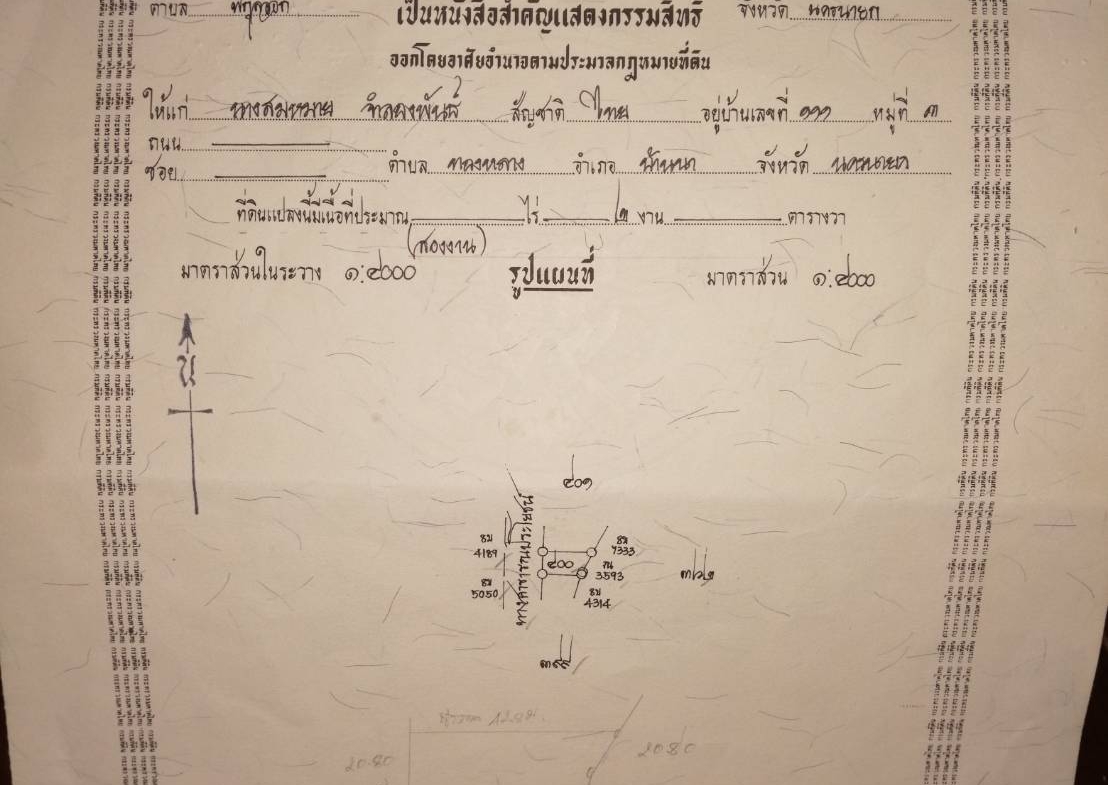 ตำบล พิกุลออก เป็นหนังสือสำคัญแสดงกรรมสิทธิ จังหวัด นครนายก
ออกโดยอาศัยอำนาจตามประมวลกฎหมายที่ดิน
ให้แก่ นางสมหมาย จำลองพันธ์ สัญชาติ ไทย อยู่บ้านเลขที่ ๑๑๑ หมู่ที่ ๓
ถนน
ซอย ตำบล ทองหลาง อำเภอ บ้านนา จังหวัด นครนายก
ที่ดินแปลงนี้มีเนื้อที่ประมาณ ไร่ ๒ งาน ตารางวา
(สองงาน)
มาตราส่วนในระวาง ๑:๔๐๐๐ รูปแผนที่ มาตราส่วน ๑:๔๐๐๐
น
๔๐๑
ทางสาธารณประโยชน์
ขม 4189
ขม 7333
๔๐๐
กน 3593
ขม 5050
ขม 4314
๓๖๒
๓๙๙
20.80 20.80